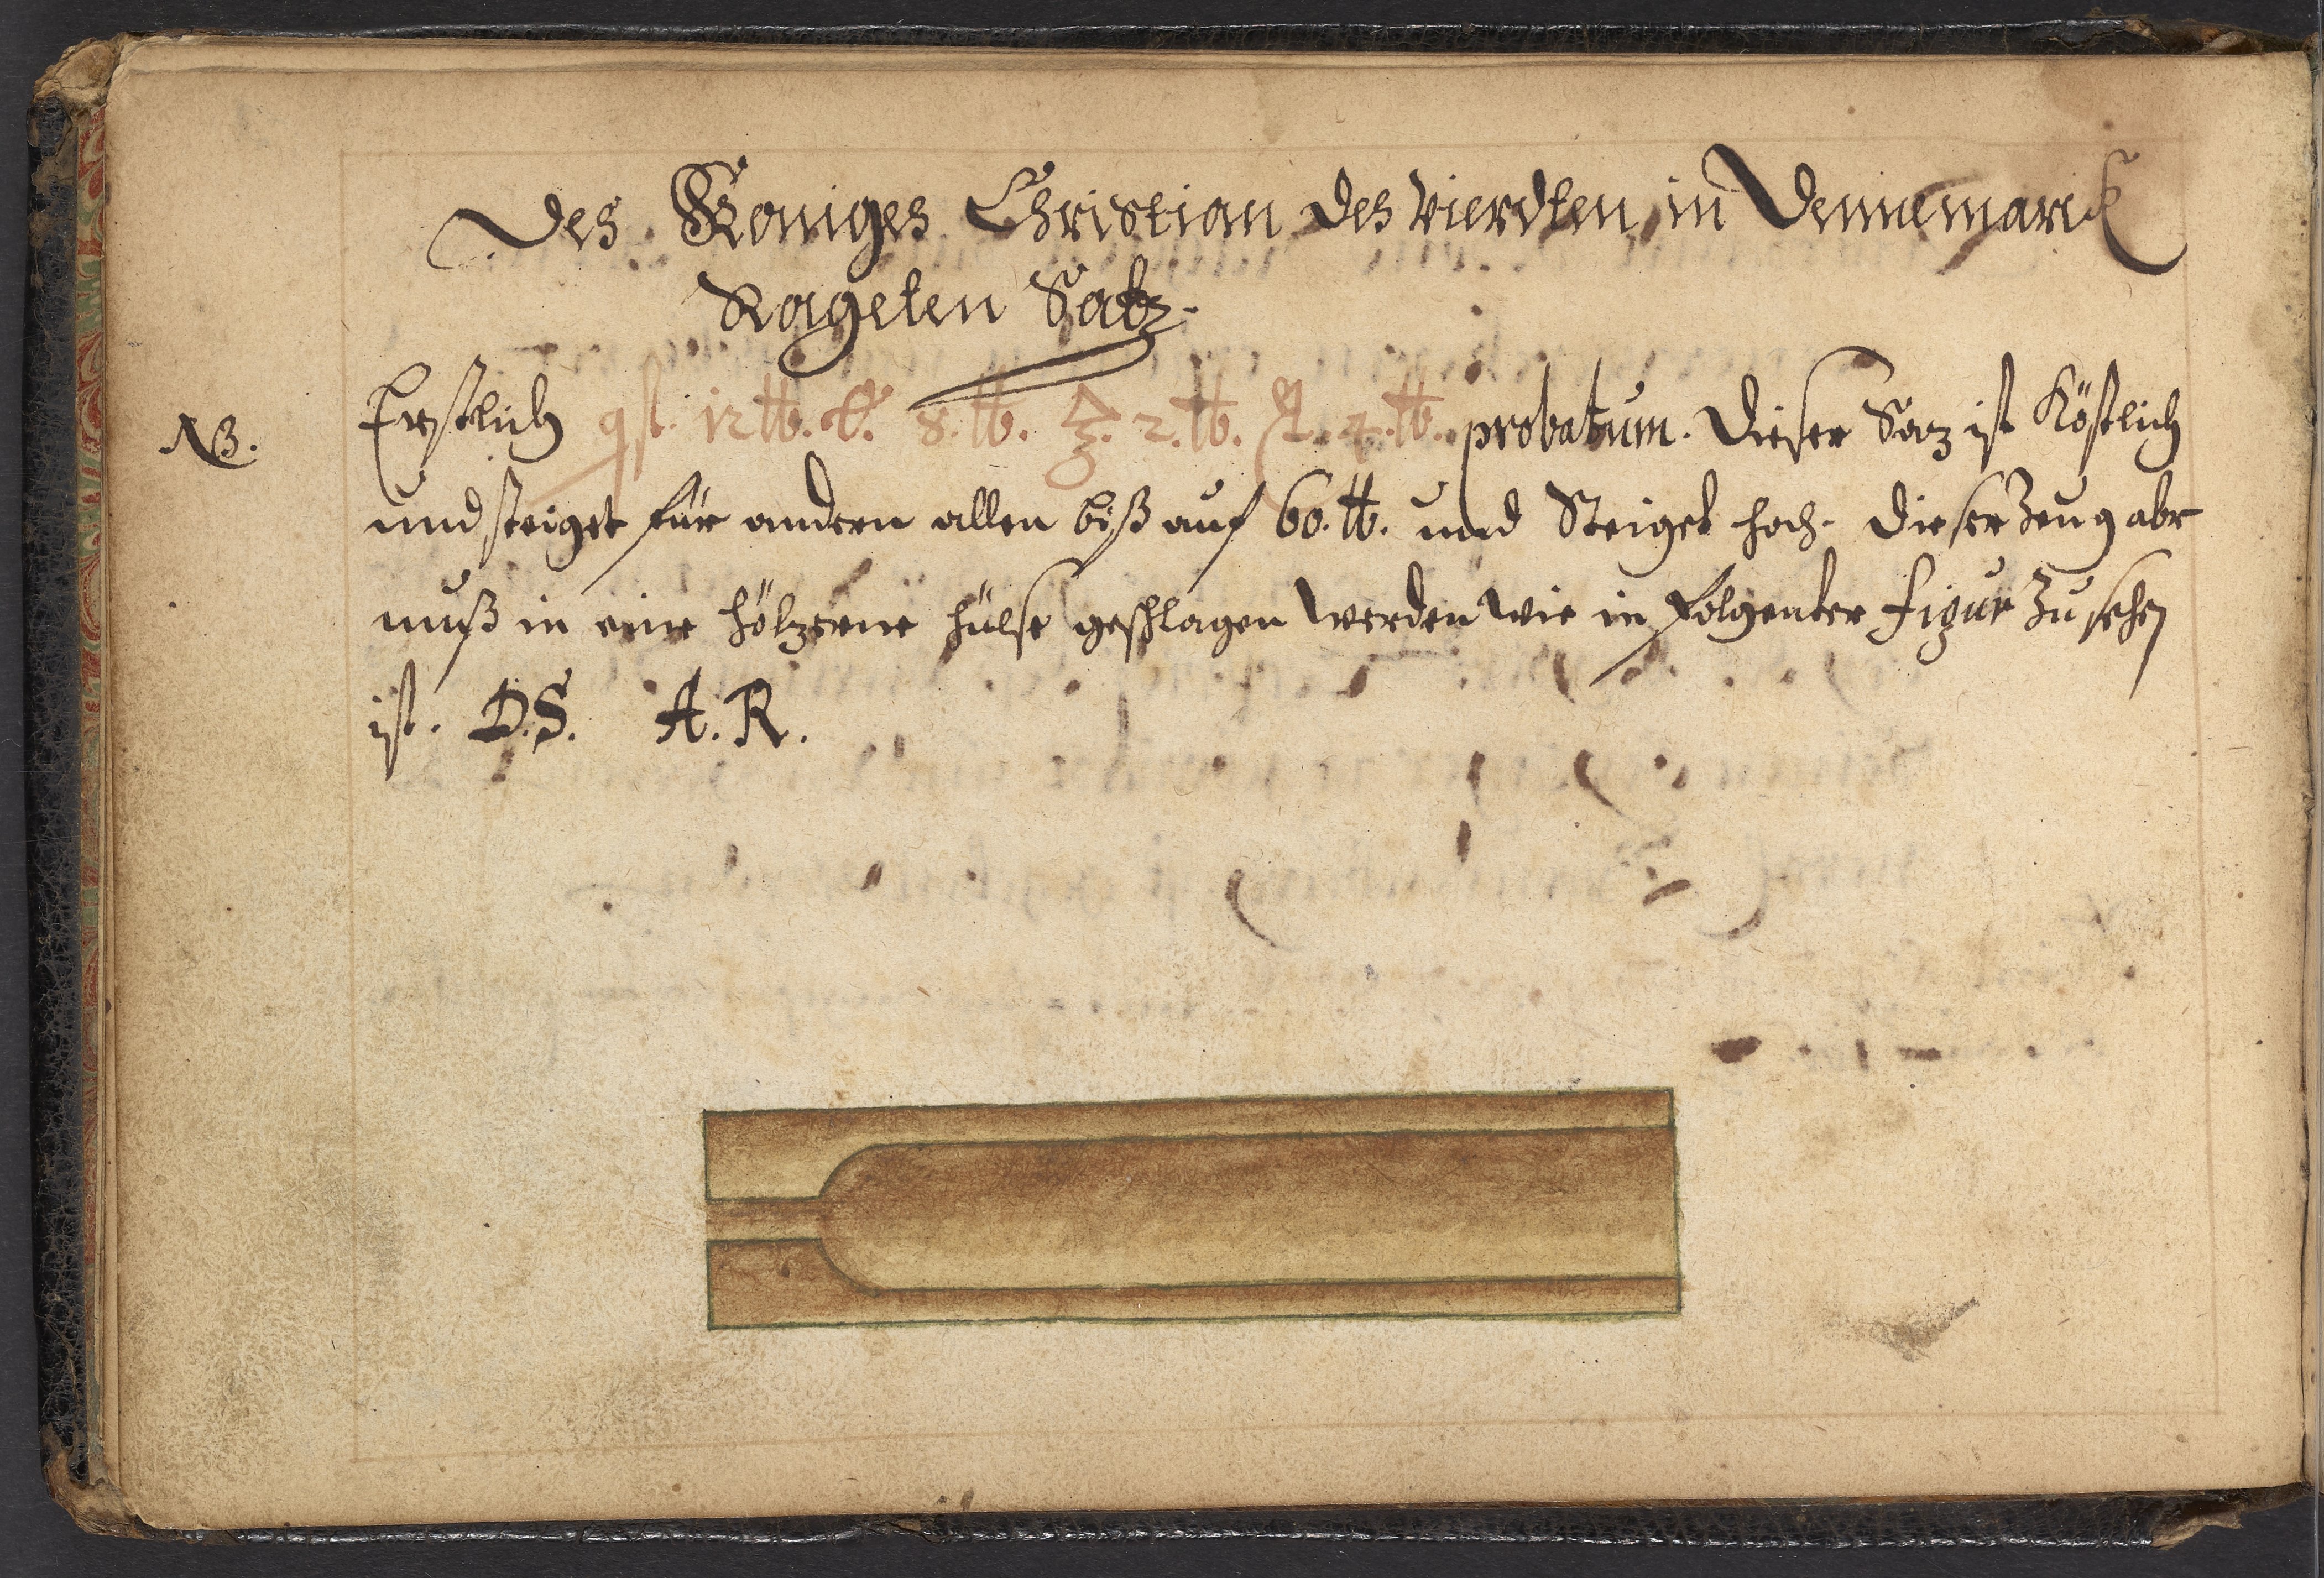 Des Königes Christian des Vierdten in Dennemarck
Rageten Satz.
NB. Erstlich 12 ℔. 8. ℔. 2. ℔. 4. ℔. probatum. Dieser Saz ist Köstlich
und steiget für andern allen biß auf 60. ℔. und Steiget hoch. dieser Zeug aber
muß in eine höltzerne hülse geschlagen werden wie in folgenter figur Zu sehen
ist. D.S. A.R.